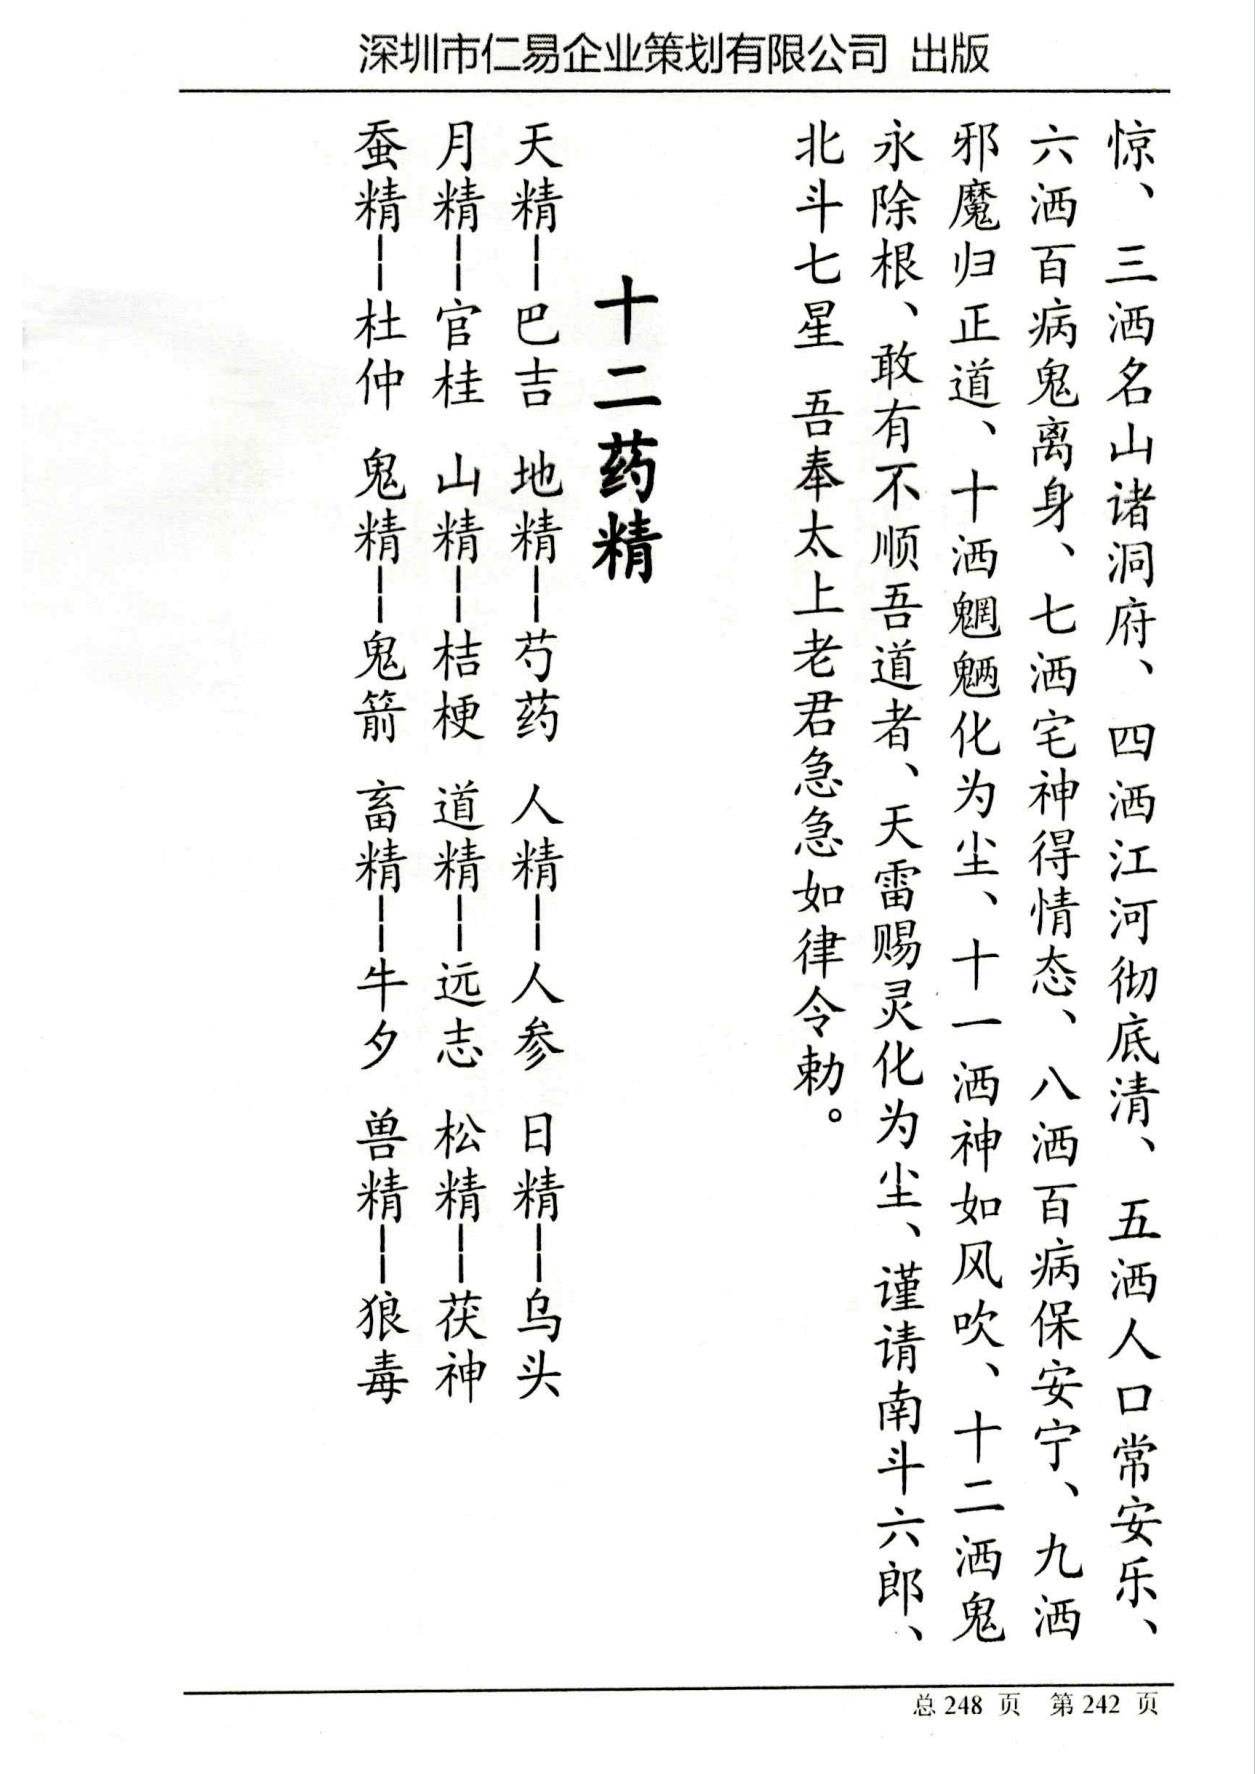 深圳市仁易企业策划有限公司 出版
惊、三洒名山诸洞府、四洒江河彻底清、五洒人口常安乐、
六洒百病鬼离身、七洒宅神得情态、八洒百病保安宁、九洒
邪魔归正道、十洒魍魉化为尘、十一洒神如风吹、十二洒鬼
永除根、敢有不顺吾道者、天雷赐灵化为尘、谨请南斗六郎、
北斗七星 吾奉太上老君急急如律令勅。
十二药精
天精——巴吉 地精——芍药 人精——人参 日精——乌头
月精——官桂 山精——桔梗 道精——远志 松精——茯神
蚕精——杜仲 鬼精——鬼箭 畜精——牛夕 兽精——狼毒
总 248 页 第 242 页